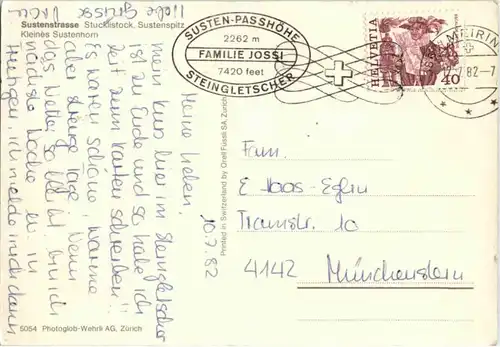 Sustenstrasse Stucklistock, Sustenspitz
Kleines Sustenhorn
SUSTEN-PASSHÖHE
2262 m
FAMILIE JOSSI
7420 feet
STEINGLETSCHER
HELVETIA
40
MEIRIN
82.-7
10.7.82
Meine Lieben,
mein Kurs hier im Steingletscher
ist zu Ende und so habe ich
Zeit zum Karten schreiben!!
Es waren schöne, warme
aber strenge Tage. Wenn
das Wetter so bleibt bin ich
nächste Woche in
ich melde mich dann
Liebe Grüsse
Fam.
E. Haas-Eglin
Tramstr. 10
4142 Münchenstein
Printed in Switzerland by Orell Füssli SA Zürich
5054 Photoglob-Wehrli AG, Zürich